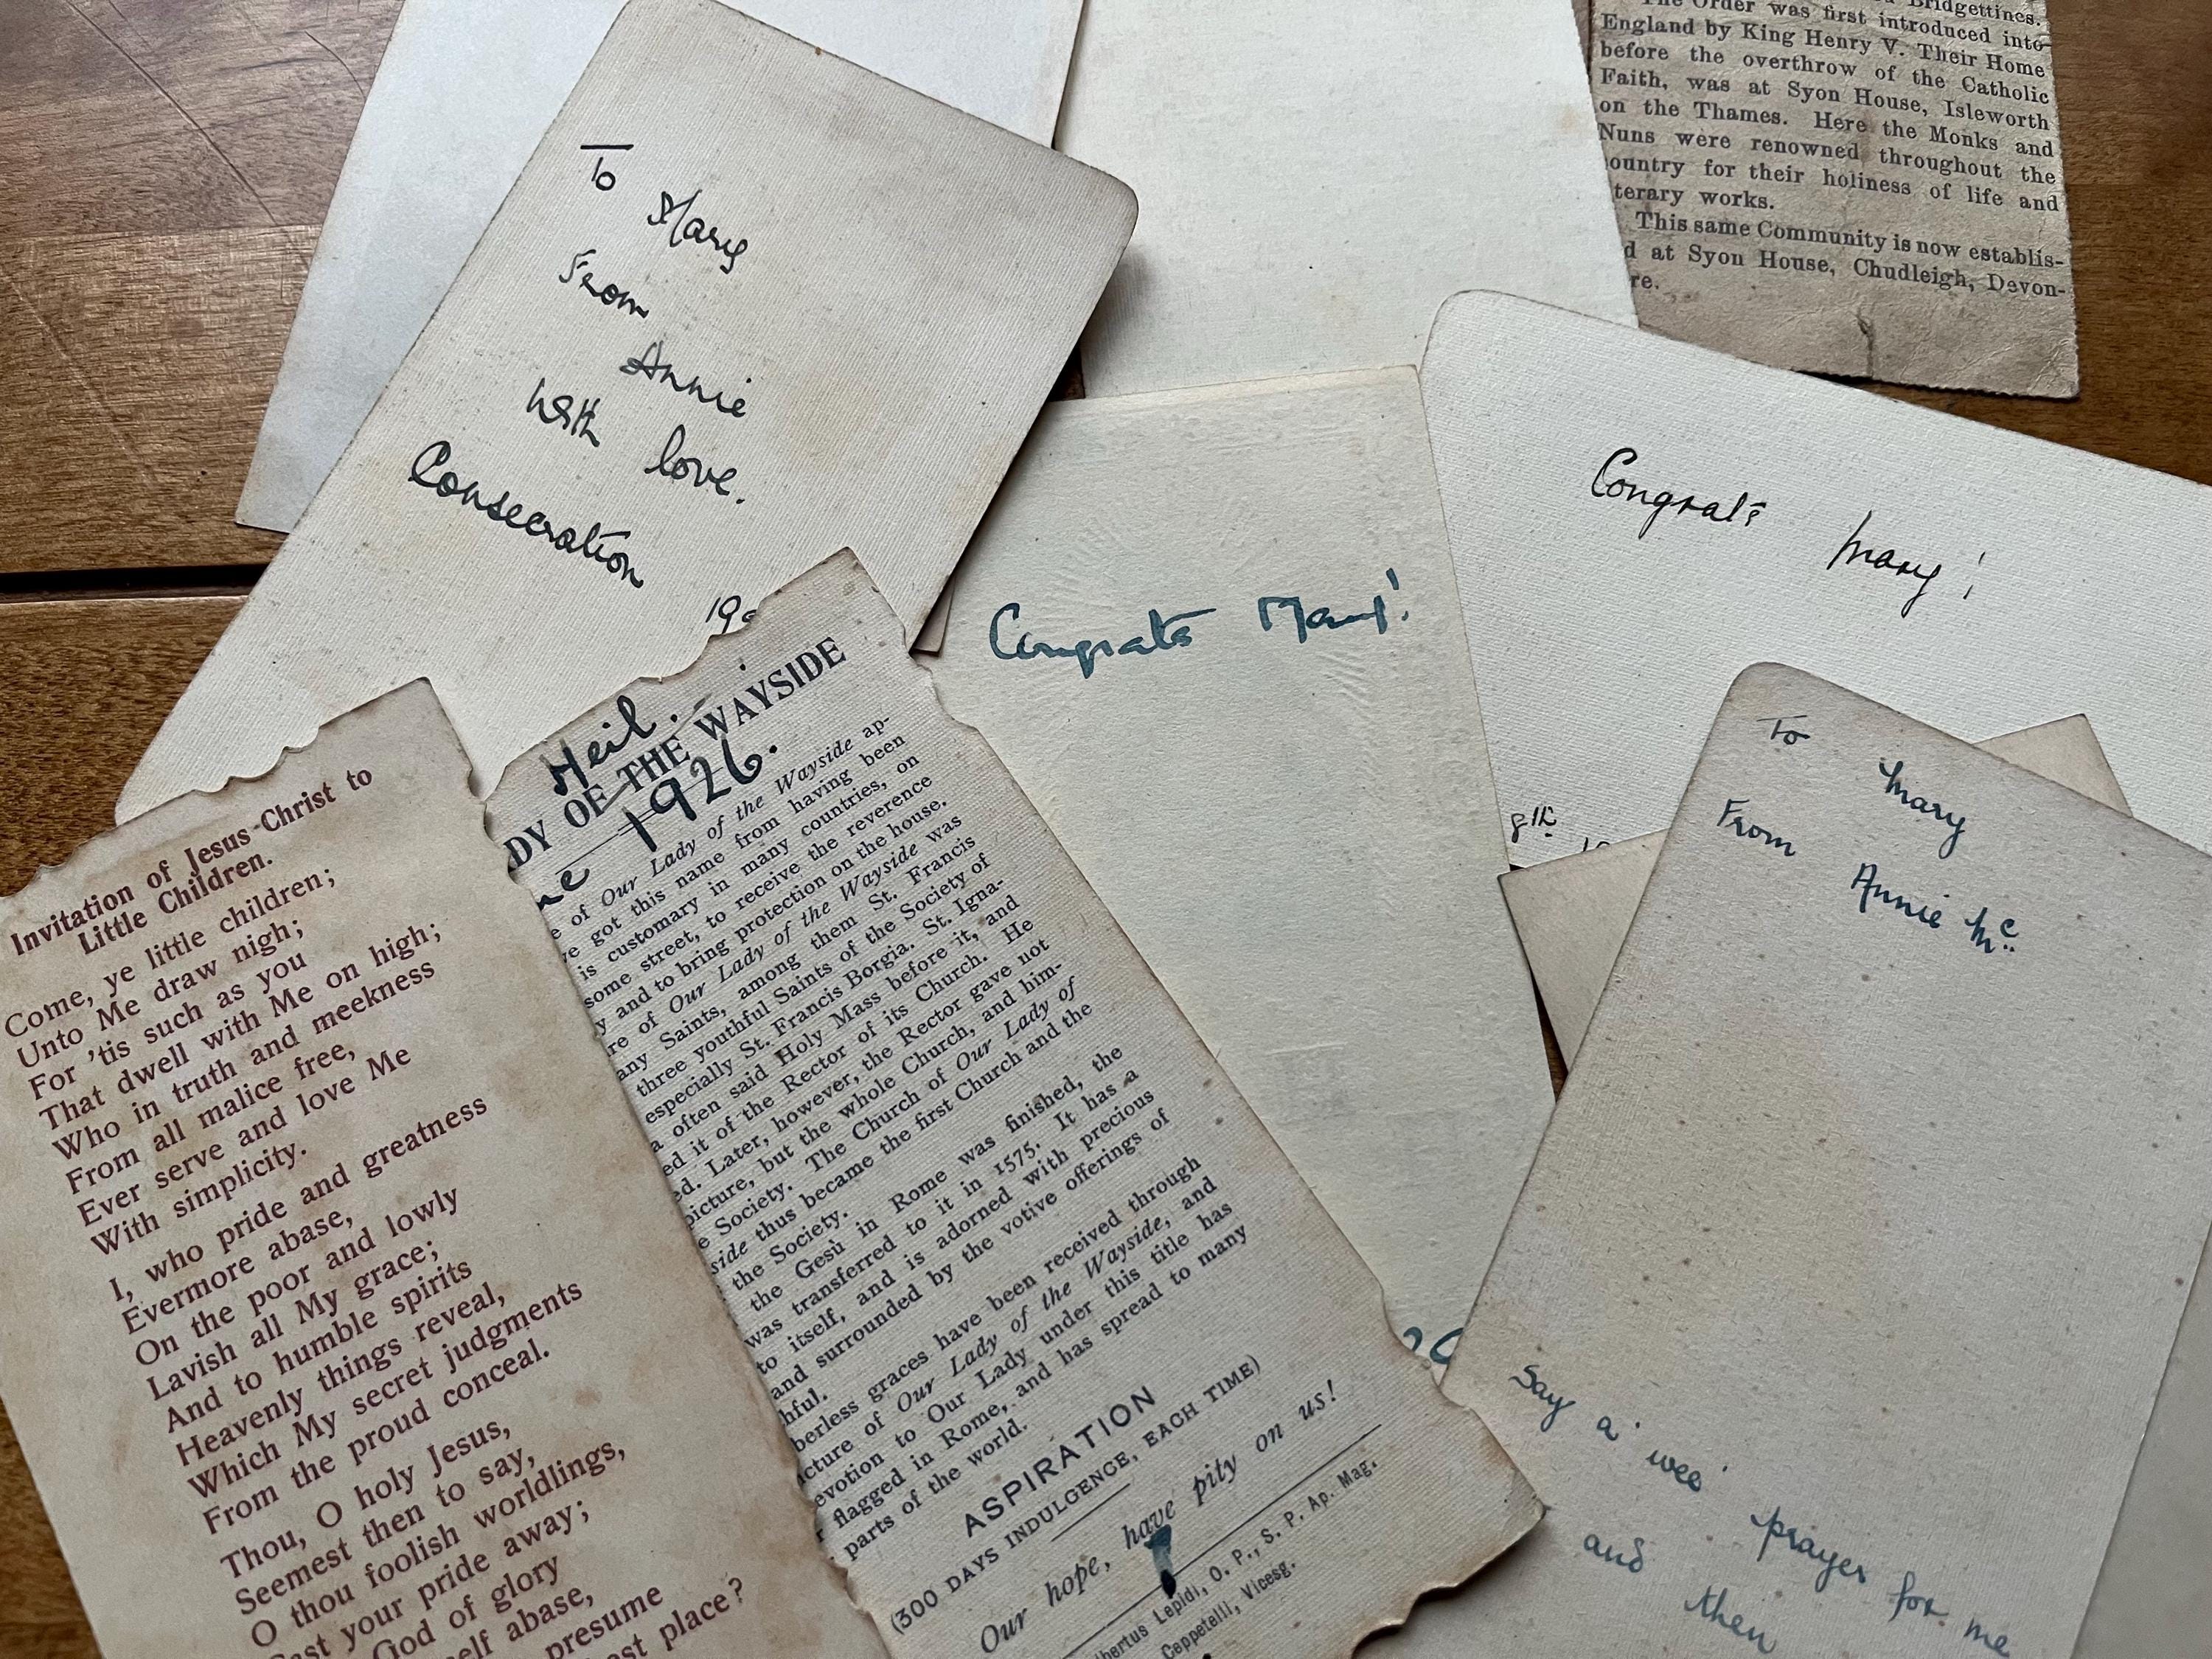 To
Mary
From
Annie
With love.
Consecration
Bridgettines.
The Order was first introduced into
England by King Henry V. Their Home
before the overthrow of the Catholic
Faith, was at Syon House, Isleworth
on the Thames. Here the Monks and
Nuns were renowned throughout the
ountry for their holiness of life and
terary works.
This same Community is now establis-
d at Syon House, Chudleigh, Devon-
re.
Congrats Mary!
Congrats Mary!
8th
To Mary
From Annie Mc
Say a 'wee' prayer for me
and then
Invitation of Jesus-Christ to
Little Children.
Come, ye little children;
Unto Me draw nigh;
For 'tis such as you
That dwell with Me on high;
Who in truth and meekness
From all malice free,
Ever serve and love Me
With simplicity.
I, who pride and greatness
Evermore abase,
On the poor and lowly
Lavish all My grace;
And to humble spirits
Heavenly things reveal,
Which My secret judgments
From the proud conceal.
Thou, O holy Jesus,
Seemest then to say,
O thou foolish worldlings,
ast your pride away;
God of glory
elf abase,
presume
est place?
Neil.
DY OF THE WAYSIDE
ne 1926.
e of Our Lady of the Wayside ap-
ve got this name from having been
is customary in many countries, on
some street, to receive the reverence
y and to bring protection on the house.
re of Our Lady of the Wayside was
any Saints, among them St. Francis
three youthful Saints of the Society of
especially St. Francis Borgia. St. Igna-
a often said Holy Mass before it, and
ed it of the Rector of its Church. He
ed. Later, however, the Rector gave not
picture, but the whole Church, and him-
e Society. The Church of Our Lady of
side thus became the first Church and the
the Society.
the Gesù in Rome was finished, the
was transferred to it in 1575. It has a
to itself, and is adorned with precious
and surrounded by the votive offerings of
hful.
berless graces have been received through
icture of Our Lady of the Wayside, and
evotion to Our Lady under this title has
r flagged in Rome, and has spread to many
parts of the world.
ASPIRATION
(300 DAYS INDULGENCE, EACH TIME)
Our hope, have pity on us!
lbertus Lepidi, O. P., S. P. Ap. Mag.
Ceppetelli, Vicesg.